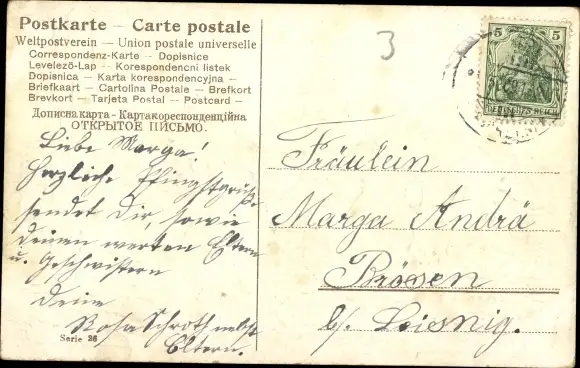 Postkarte — Carte postale
Weltpostverein — Union postale universelle
Correspondenz-Karte — Dopisnice
Levelező-Lap — Korespondencni listek
Dopisnica — Karta korespondencyjna —
Briefkaart — Cartolina Postale — Brefkort
Brevkort — Tarjeta Postal — Postcard —
Дописна карта - Картакореспонденційна
ОТКРЫТОЕ ПИСЬМО.
Liebe Marga!
Herzliche Pfingstgrüße
sendet Dir, sowie
deinen werten Eltern
u. Geschwistern
Deine
Rosa Schroth nebst
Eltern.
Serie 26
3
5 5
DEUTSCHES REICH
Fräulein
Marga Andrä
Brösen
b/. Leisnig.